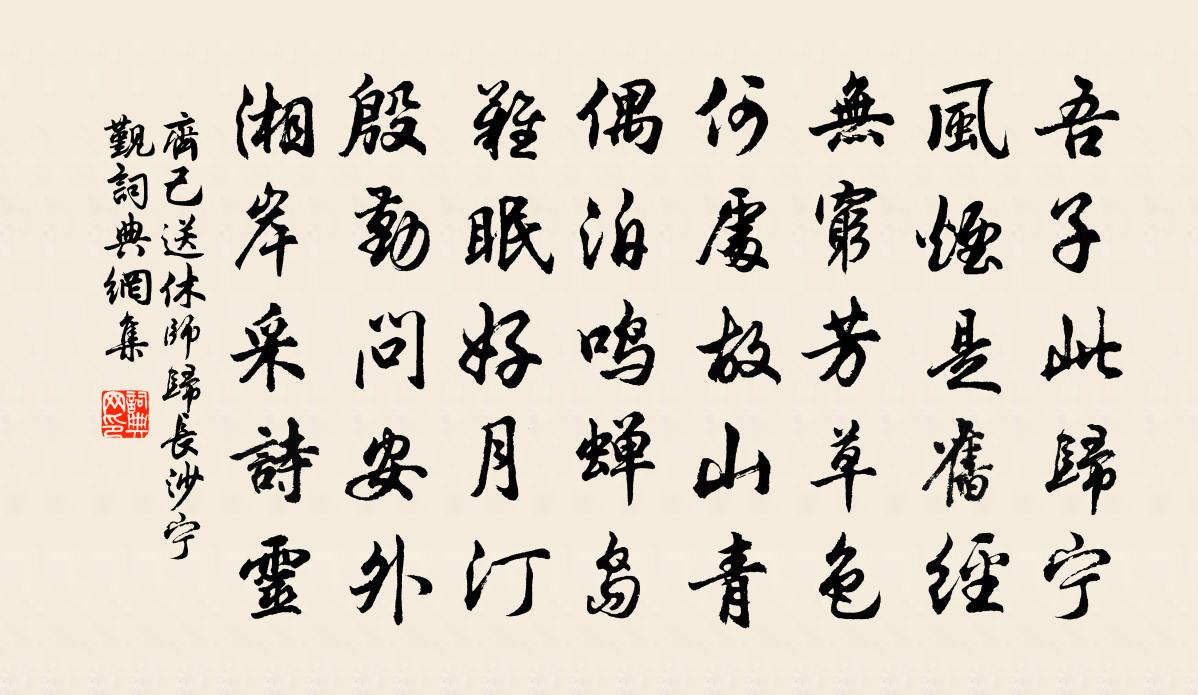 吾子此歸宁
風煙是舊經
無窮芳草色
何處故山青
偶泊鳴蟬島
難眠好月汀
殷勤問安外
湘岸采詩靈
齊己送休師歸長沙宁
觀詞典網集
詞典網印